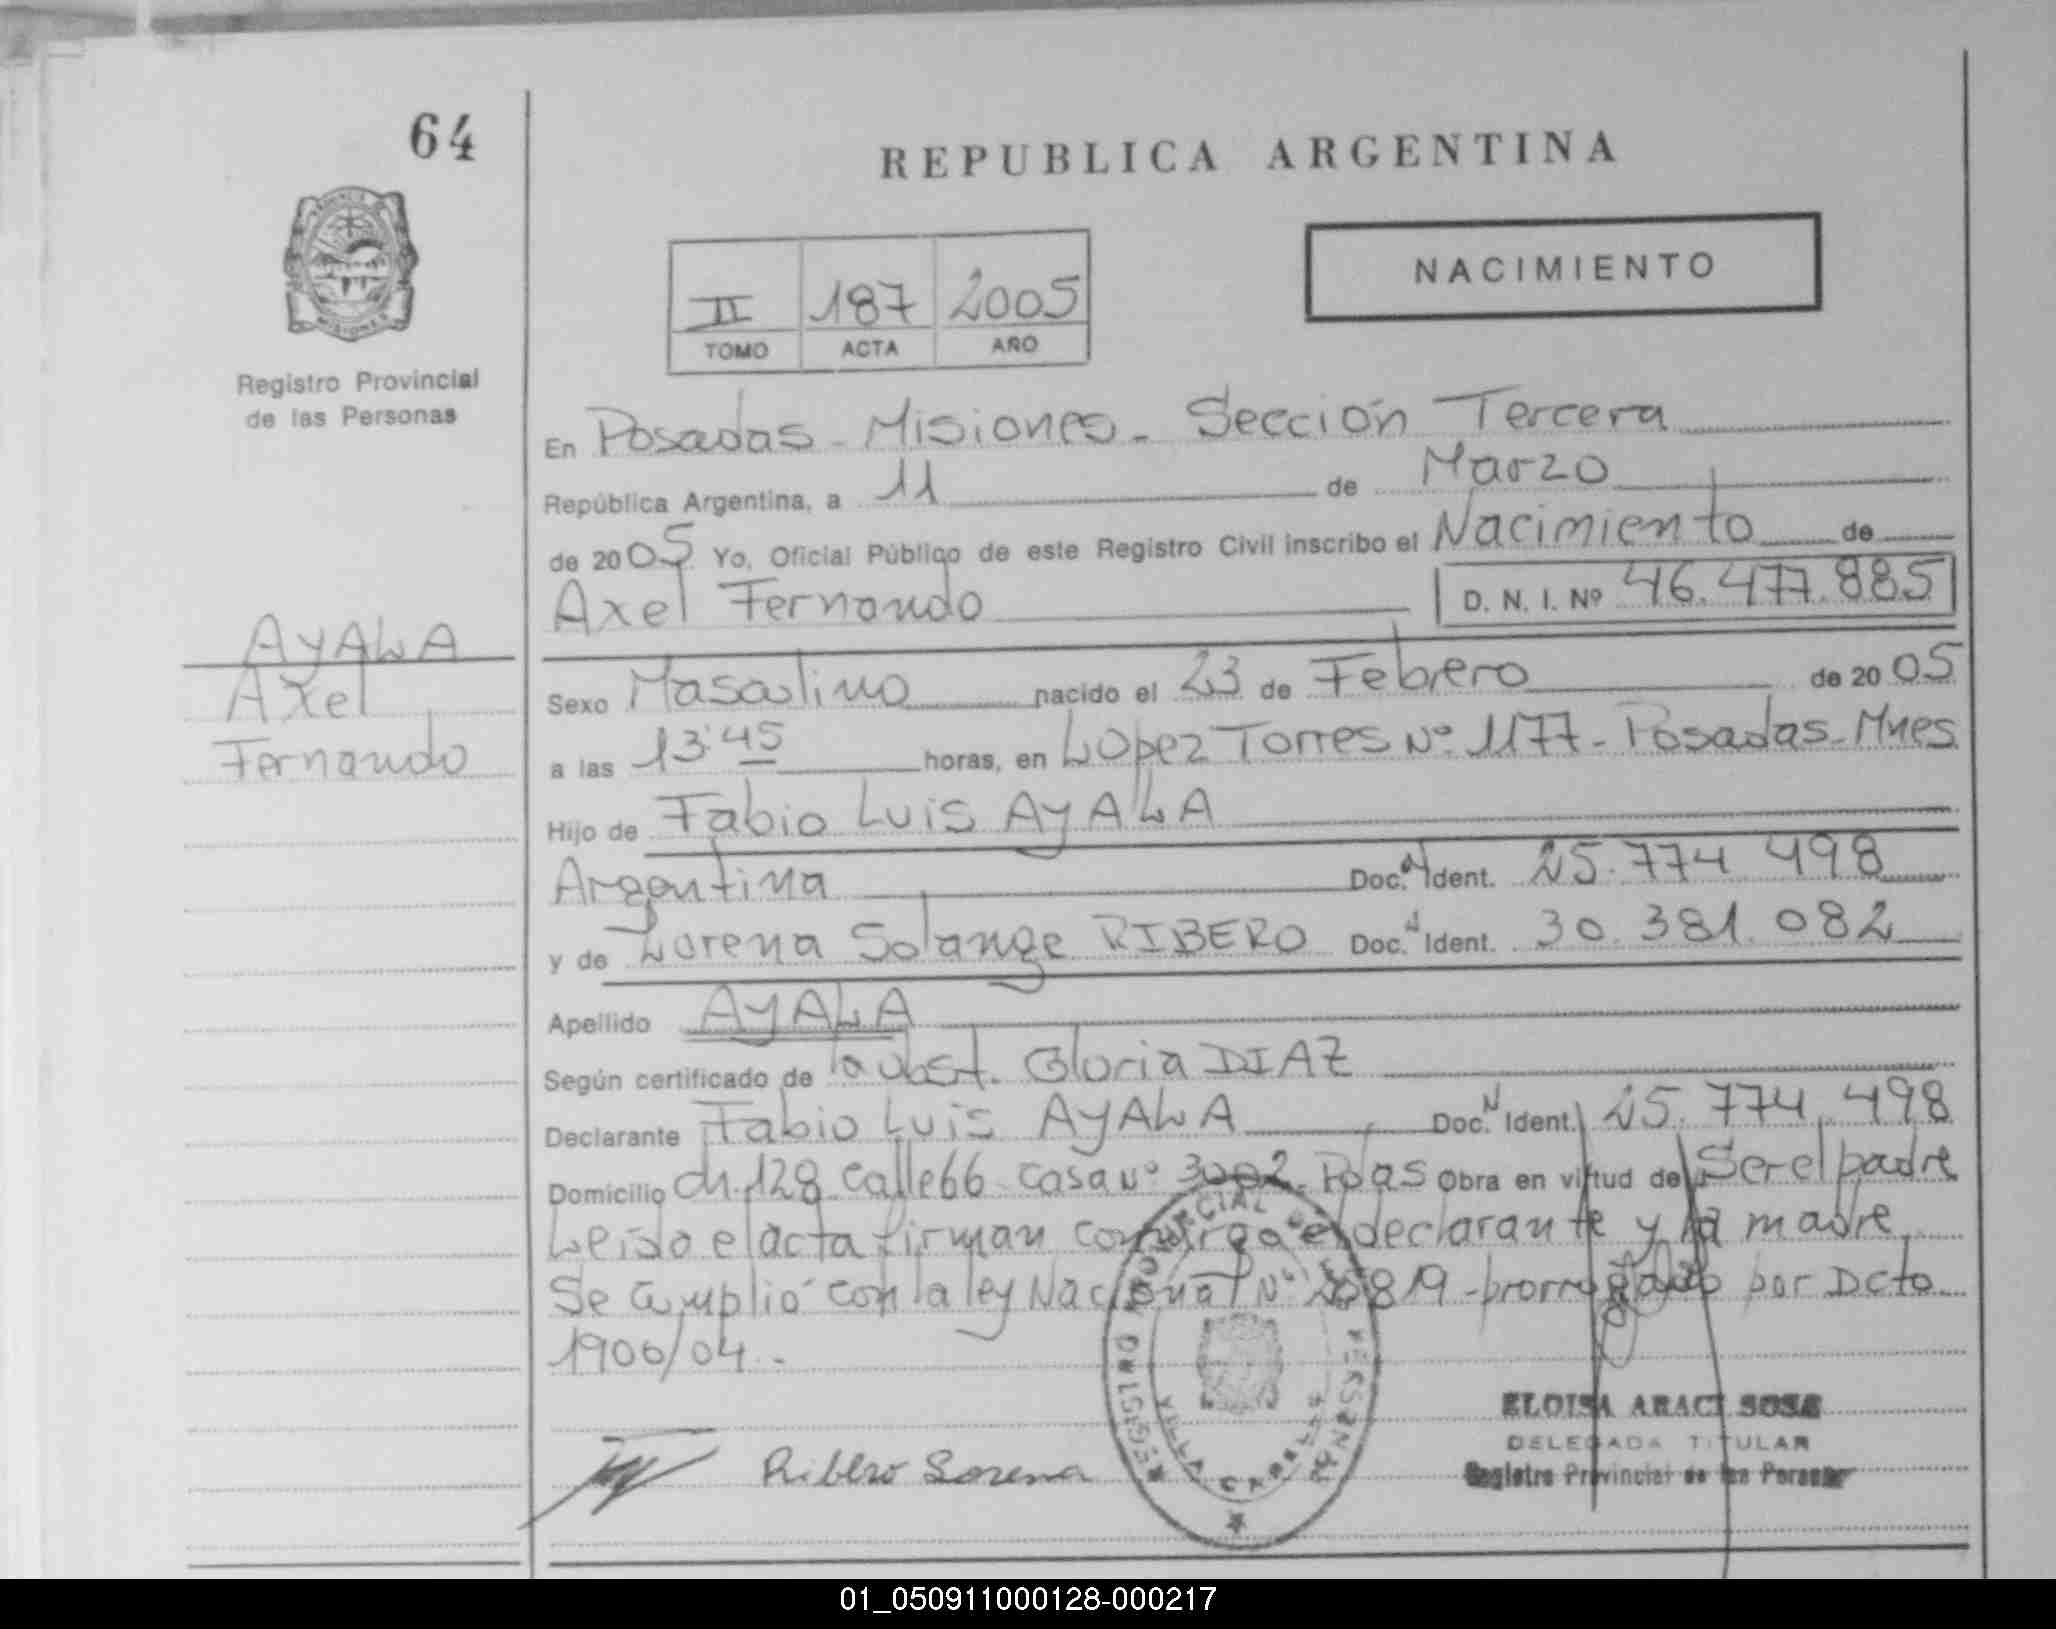 64
REPUBLICA ARGENTINA
NACIMIENTO
II 187 2005
TOMO ACTA AÑO
PROVINCIA DE MISIONES
Registro Provincial
de las Personas
En Posadas - Misiones - Sección Tercera
República Argentina, a 11 de Marzo
de 2005 Yo, Oficial Público de este Registro Civil inscribo el Nacimiento de
Axel Fernando D. N. I. Nº 46.477.885
AYALA
Axel
Fernando
Sexo Masculino nacido el 23 de Febrero de 2005
a las 13:45 horas, en Lopez Torres Nº 1177 - Posadas - Mnes
Hijo de Fabio Luis AYALA
Argentina Doc. N Ident. 25.774 498
y de Lorena Solange RIBERO Doc. N Ident. 30.381.082
Apellido AYALA
Según certificado de la obst. Gloria DIAZ
Declarante Fabio Luis AYALA Doc. N Ident. 25.774.498
Domicilio ch. 128 calle 66 casa Nº 3002 Pdas Obra en virtud de Ser el padre
Leido el acta firman conmigo el declarante y la madre
Se cumplió con la ley Nacional Nº 25819 - prorrogado por Dcto
1900/04.-
REGISTRO PROVINCIAL DE LAS PERSONAS
VILLA CABELLO
Ribero Lorena
ELOISA ARACI SOSA
DELEGADA TITULAR
Registro Provincial de las Personas
01_050911000128-000217